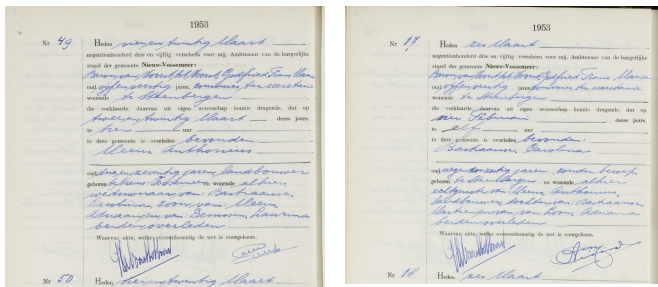 1953
Nr 49 Heden vier en twintig Maart
negentienhonderd drie en vijftig verscheen voor mij, Ambtenaar van de burgerlijke
stand der gemeente Nieuw-Vossemeer:
Baron van Voorst tot Voorst, Godfried Frans Maria
oud vijf en veertig jaren, commies ter secretarie
wonende te Steenbergen
die verklaarde, daarvan uit eigen wetenschap kennis dragende, dat op
twee en twintig Maart dezes jaars,
te tien uur
in deze gemeente is overleden bevonden:
Meeus Anthonius
oud jaren, landbouwer
geboren te Nieuw Vossemeer en wonende alhier
weduwnaar van: Bastiaansen
Carolina, zoon van: Meeus
Adriaan en van
beiden overleden
Waarvan akte, welke overeenkomstig de wet is voorgelezen.
Nr 50 Heden vier en twintig Maart
1953
Nr 17 Heden zes Maart
negentienhonderd drie en vijftig verscheen voor mij, Ambtenaar van de burgerlijke
stand der gemeente Nieuw-Vossemeer:
Baron van Voorst tot Voorst, Godfried Frans Maria
oud vijf en veertig jaren, commies ter secretarie
wonende te Steenbergen
die verklaarde, daarvan uit eigen wetenschap kennis dragende, dat op
Februari dezes jaars,
te elf uur
in deze gemeente is overleden bevonden:
Bastiaansen Carolina
oud jaren, zonder beroep
geboren te Steenbergen en wonende alhier
echtgenote van Meeus Anthonius,
landbouwer, dochter van: Bastiaansen
en van Adriana
beiden overleden
Waarvan akte, welke overeenkomstig de wet is voorgelezen.
Nr 18 Heden zes Maart